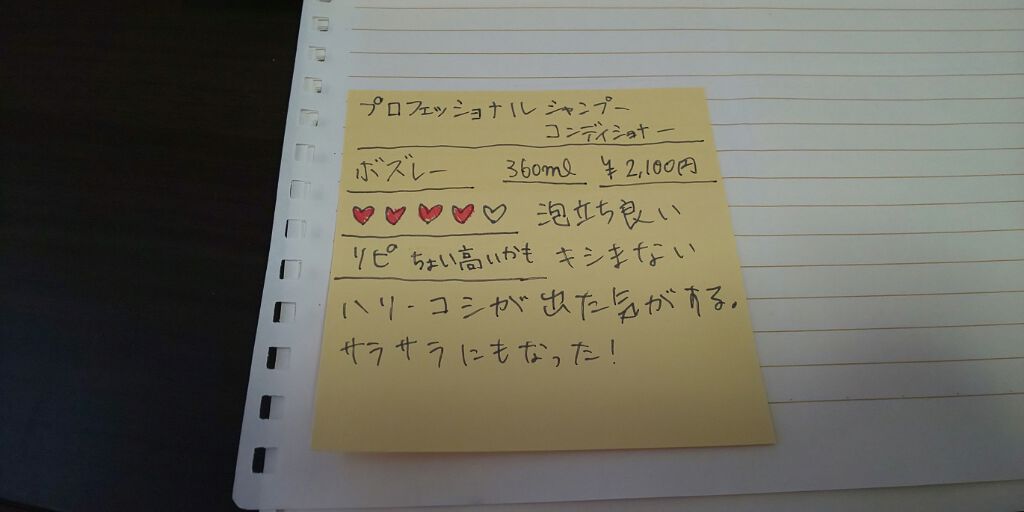 プロフェッショナル シャンプー
コンディショナー
ボズレー 360ml ¥2,100円
♥♥♥♥♡ 泡立ち良い
リピ ちょい高いかも キシまない
ハリ・コシが出た気がする。
サラサラにもなった!